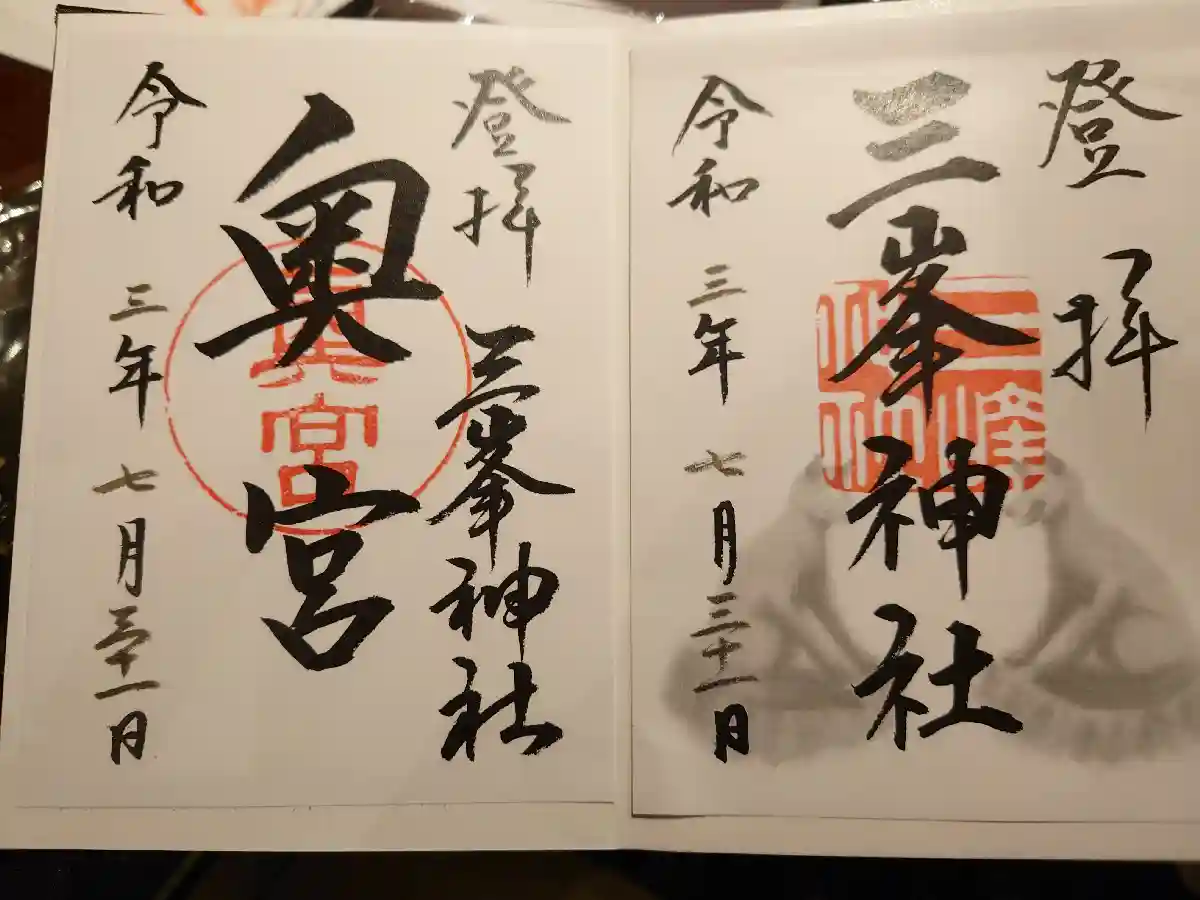 登拝
三峯神社
令和三年七月三十一日
登拝
三峯神社
奥宮
奥宮
令和三年七月三十一日